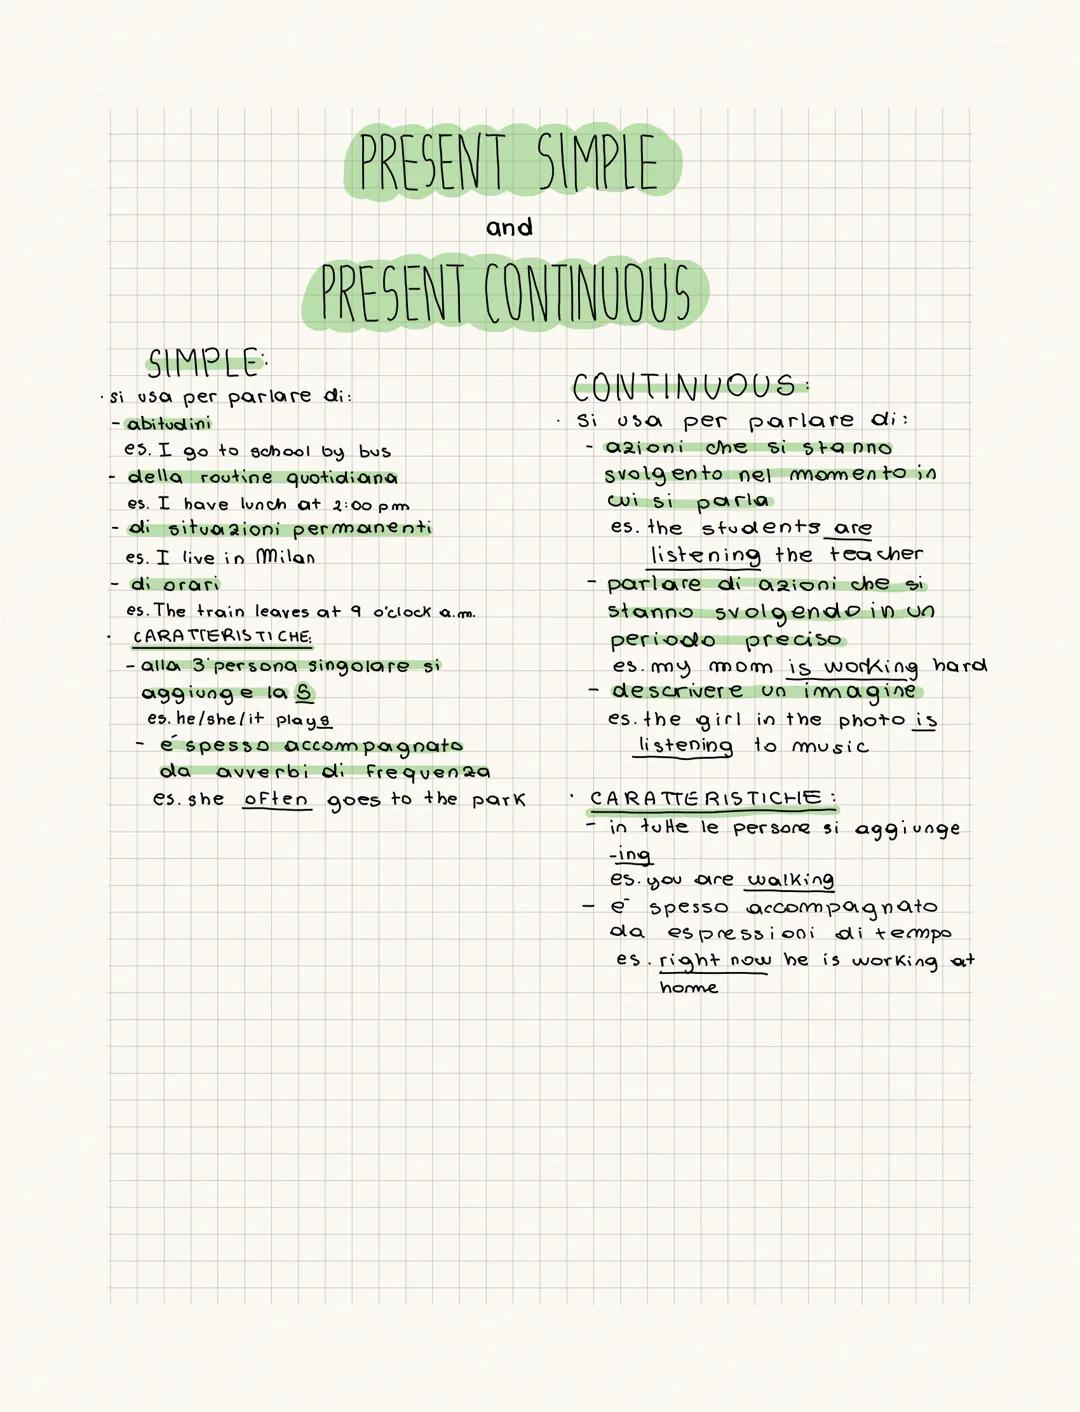 PRESENT SIMPLE
and
PRESENT CONTINUOUS
SIMPLE:
· si usa per parlare di:
- abitudini
es. I go to school by bus
- della routine quotidiana
es. I have lunch at 2:00 pm
- di situazioni permanenti
es. I live in Milan
- di orari
es. The train leaves at 9 o'clock a.m.
· CARATTERISTICHE:
- alla 3° persona singolare si
aggiunge la S
es. he/she/it plays
- é spesso accompagnato
da avverbi di frequenza
es. she often goes to the park
CONTINUOUS:
· Si usa per parlare di:
- azioni che si stanno
svolgento nel momento in
cui si parla
es. the students are
listening the teacher
- parlare di azioni che si
stanno svolgendo in un
periodo preciso
es. my mom is working hard
- descrivere un imagine
es. the girl in the photo is
listening to music
· CARATTERISTICHE:
- in tutte le persone si aggiunge
-ing
es. you are walking
- é spesso accompagnato
da espressioni di tempo
es. right now he is working at
home